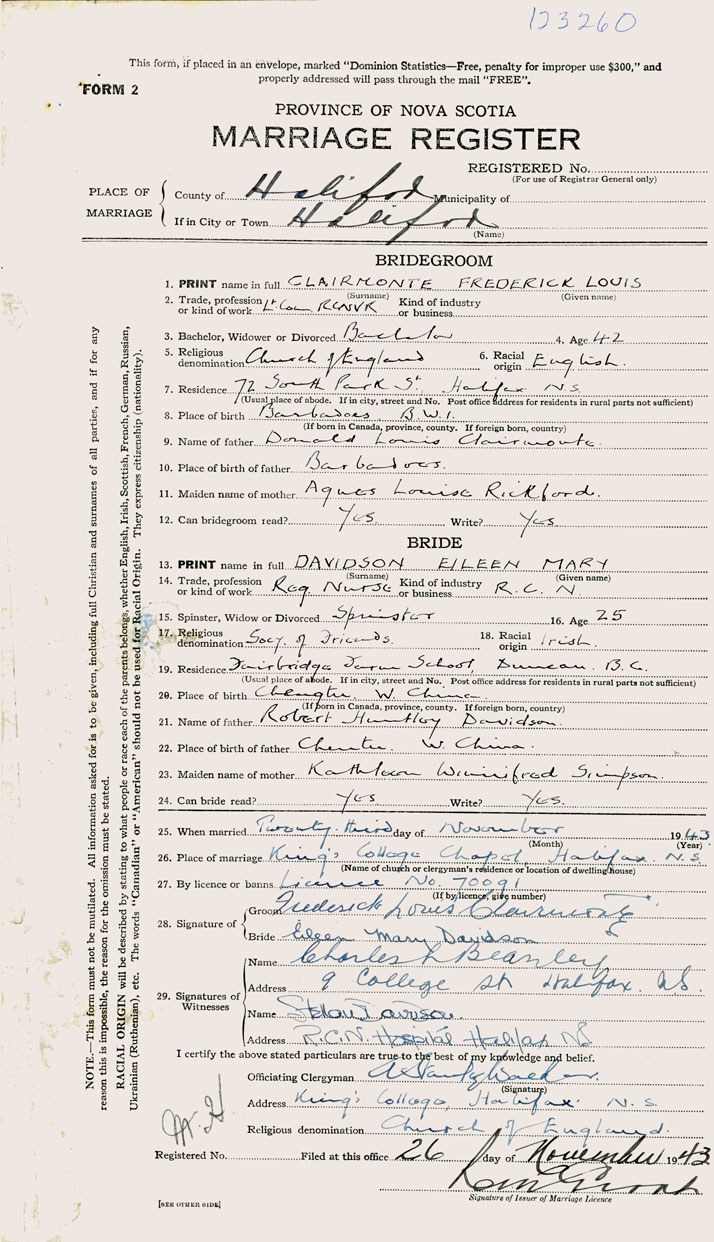 123260
This form, if placed in an envelope, marked "Dominion Statistics—Free, penalty for improper use $300," and
properly addressed will pass through the mail "FREE".
FORM 2
PROVINCE OF NOVA SCOTIA
MARRIAGE REGISTER
REGISTERED No.
(For use of Registrar General only)
PLACE OF MARRIAGE
County of Halifax Municipality of
If in City or Town Halifax
(Name)
BRIDEGROOM
1. PRINT name in full CLAIRMONTE FREDERICK LOUIS
(Surname) (Given name)
2. Trade, profession or kind of work Lt. Com. RCNVR Kind of industry or business
3. Bachelor, Widower or Divorced Bachelor 4. Age 42
5. Religious denomination Church of England 6. Racial origin English.
7. Residence 72 South Park St. Halifax N.S.
(Usual place of abode. If in city, street and No. Post office address for residents in rural parts not sufficient)
8. Place of birth Barbadoes B.W.I.
(If born in Canada, province, county. If foreign born, country)
9. Name of father Donald Louis Clairmonte.
10. Place of birth of father Barbadoes.
11. Maiden name of mother Agnes Louise Rickford.
12. Can bridegroom read? Yes Write? Yes.
BRIDE
13. PRINT name in full DAVIDSON EILEEN MARY
(Surname) (Given name)
14. Trade, profession or kind of work Reg. Nurse Kind of industry or business R.C.N.
15. Spinster, Widow or Divorced Spinster 16. Age 25
17. Religious denomination Socy. of Friends. 18. Racial origin Irish.
19. Residence Fairbridge Farm School, Duncan. B.C.
(Usual place of abode. If in city, street and No. Post office address for residents in rural parts not sufficient)
20. Place of birth Chengtu W. China
(If born in Canada, province, county. If foreign born, country)
21. Name of father Robert Huntley Davidson.
22. Place of birth of father Chentu W. China.
23. Maiden name of mother Kathleen Winnifred Simpson.
24. Can bride read? Yes Write? Yes.
25. When married Twenty third day of November 1943
(Month) (Year)
26. Place of marriage King's College Chapel, Halifax. N.S.
(Name of church or clergyman's residence or location of dwelling house)
27. By licence or banns Licence No. 70091
(If by licence, give number)
28. Signature of
Groom Frederick Louis Clairmonte
Bride Eileen Mary Davidson
29. Signatures of Witnesses
Name Charles L Beazley
Address 9 College St Halifax. N.S.
Name Davidson
Address R.C.N. Hospital Halifax NS
I certify the above stated particulars are true to the best of my knowledge and belief.
Officiating Clergyman A Stanley Walker.
(Signature)
Address King's College, Halifax. N.S.
Religious denomination Church of England.
Registered No. Filed at this office 26 day of November 1943
Signature of Issuer of Marriage Licence
[SEE OTHER SIDE]
NOTE.—This form must not be mutilated. All information asked for is to be given, including full Christian and surnames of all parties, and if for any
reason this is impossible, the reason for the omission must be stated.
RACIAL ORIGIN will be described by stating to what people or race each of the parents belongs, whether English, Irish, Scottish, French, German, Russian,
Ukrainian (Ruthenian), etc. The words "Canadian" or "American" should not be used for Racial Origin. They express citizenship (nationality).